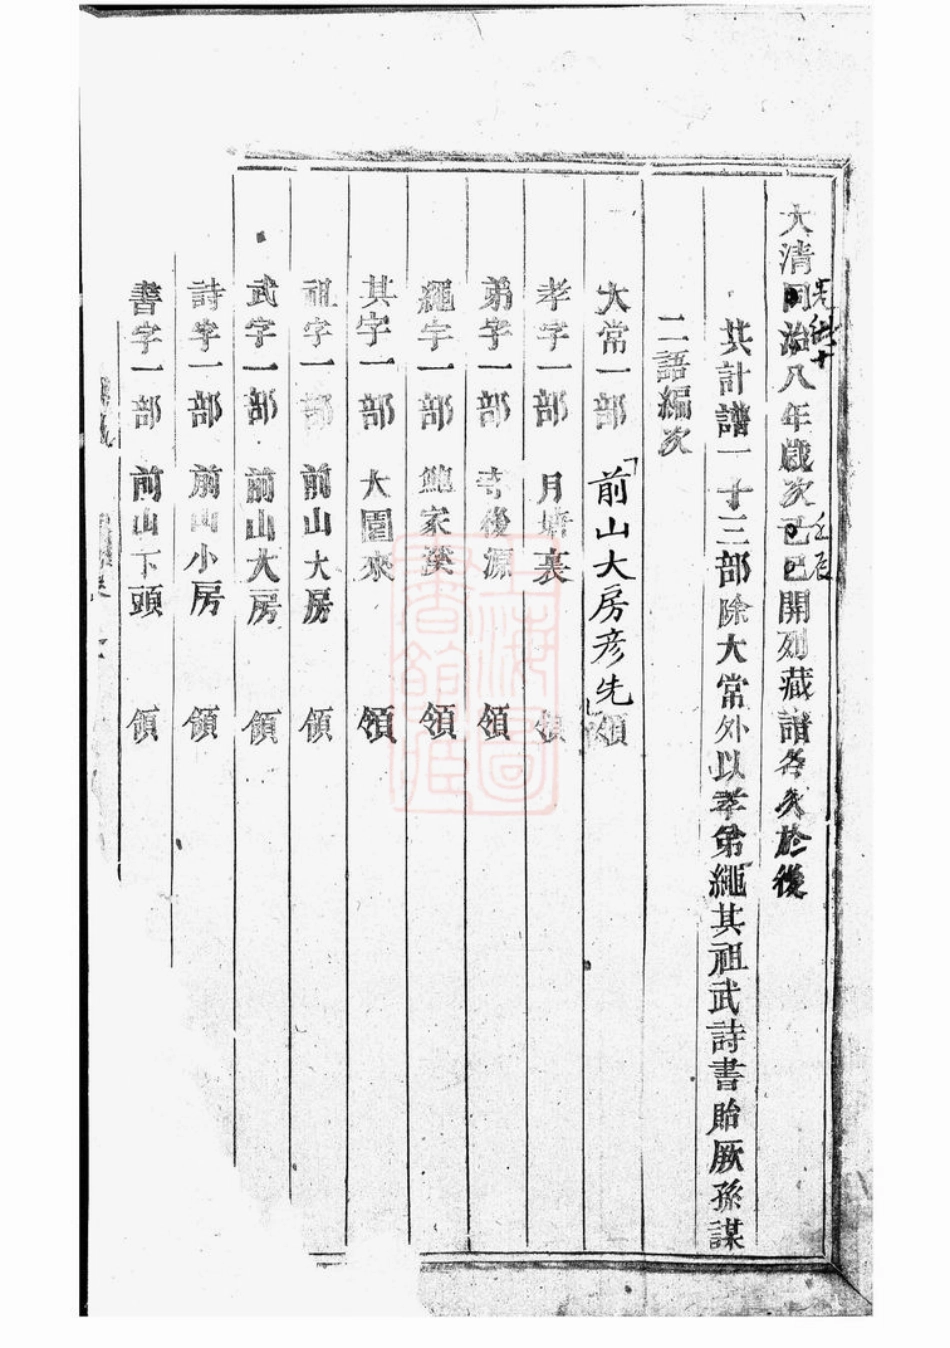 大清同治八年歲次己巳開列藏譜各久於後
光緒十
壬辰
共計譜一十三部除大常外以孝弟繩其祖武詩書貽厥孫謀
二語編次
大常一部 前山大房彦先 領
孝字一部 月 裏 領
弟字一部 寺後源 領
繩字一部 鮑家 領
其字一部 大園來 領
祖字一部 前山大房 領
武字一部 前山大房 領
詩字一部 前山小房 領
書字一部 前山下頭 領
上海圖書館藏